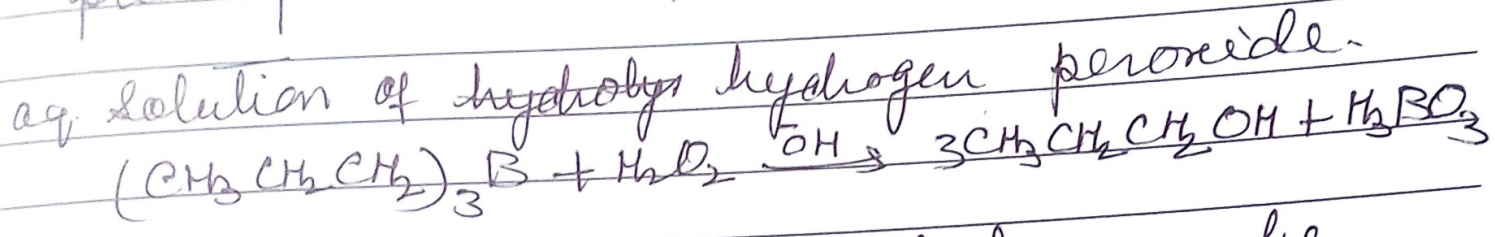 aq. solution of hydrogen peroxide.
(CH₃ CH₂ CH₂)₃B + H₂O₂ —OH⁻→ 3CH₃CH₂CH₂OH + H₃BO₃